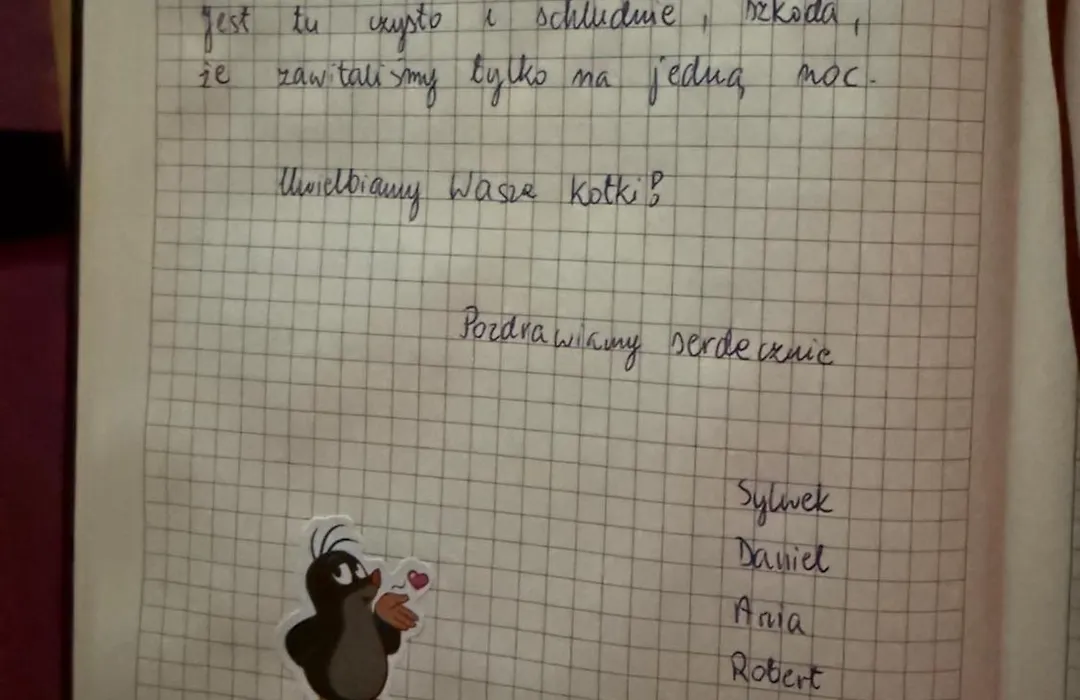 jest tu czysto i schludnie, szkoda,
że zawitaliśmy tylko na jedną noc.
Uwielbiamy Wasze kotki!
Pozdrawiamy serdecznie
Sylwek
Daniel
Ania
Robert